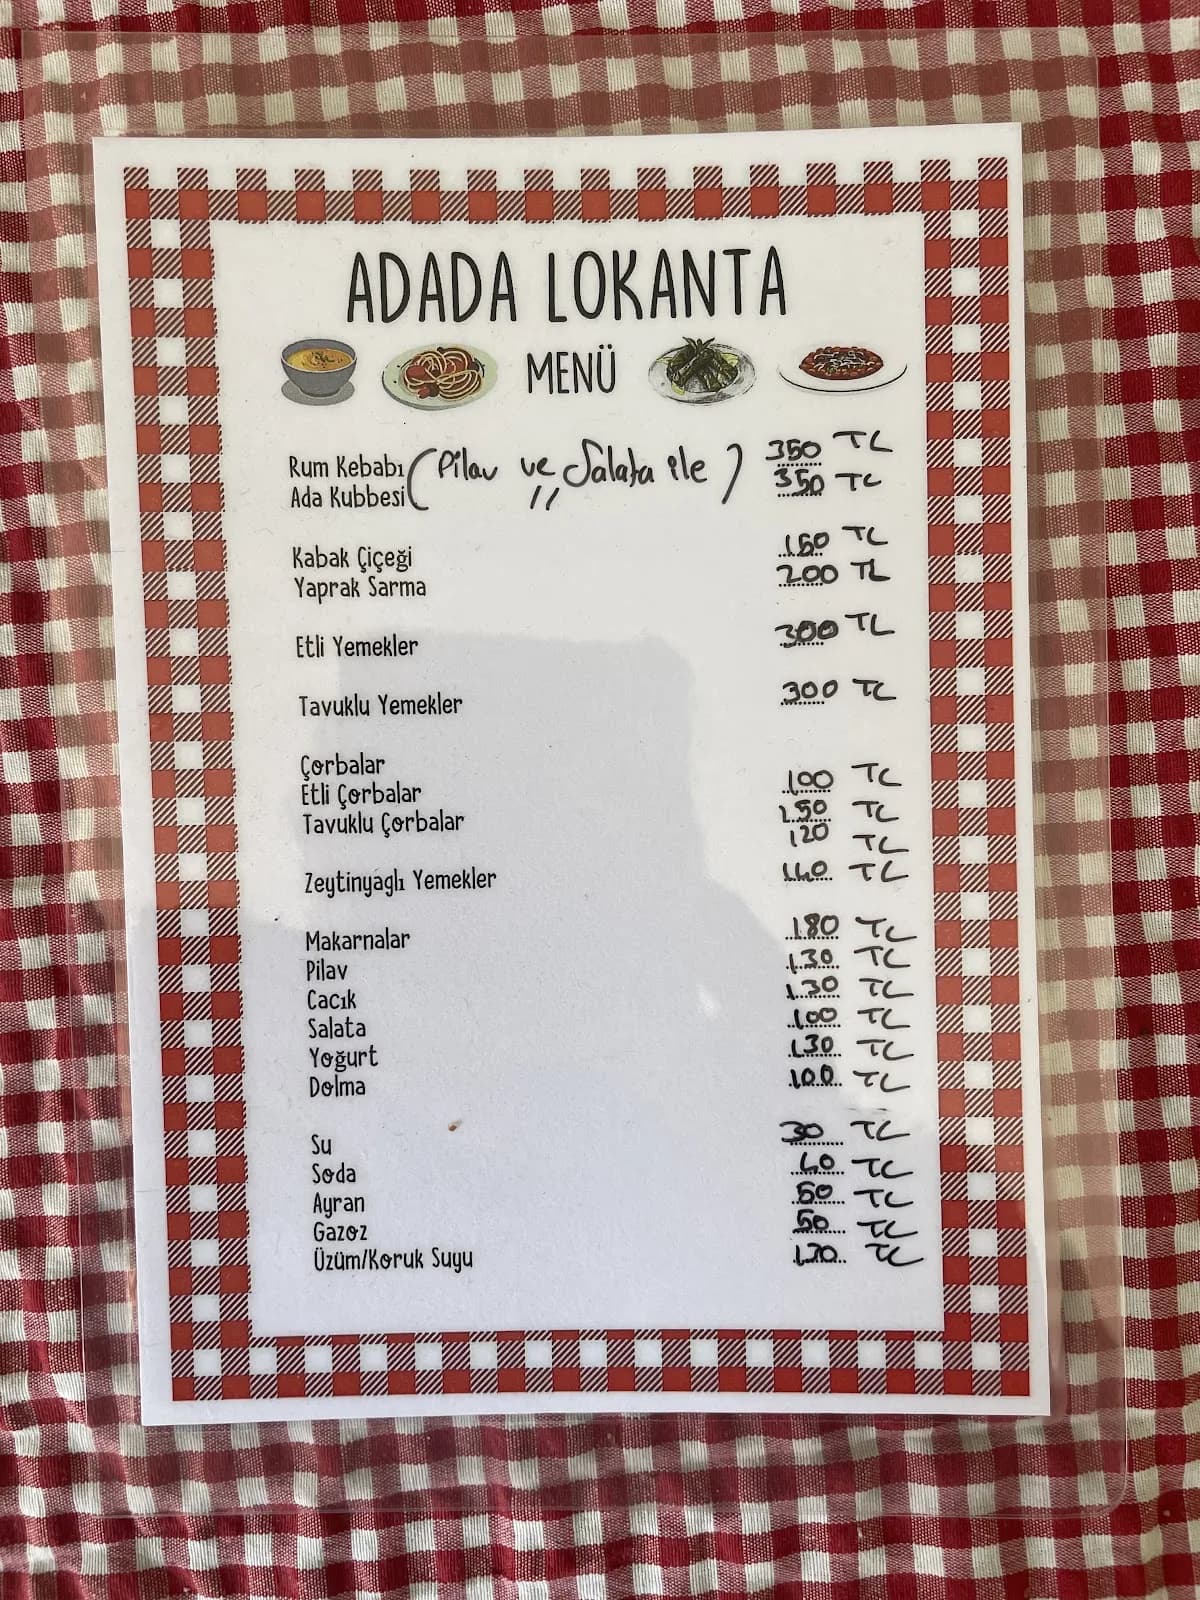 ADADA LOKANTA
MENÜ
Rum Kebabı (Pilav ve Salata ile) 350 TL
Ada Kubbesi " 350 TL
Kabak Çiçeği TL
Yaprak Sarma 200 TL
Etli Yemekler 300 TL
Tavuklu Yemekler 300 TL
Çorbalar 100 TL
Etli Çorbalar 150 TL
Tavuklu Çorbalar 120 TL
Zeytinyaglı Yemekler 140 TL
Makarnalar 180 TL
Pilav 130 TL
Cacık 130 TL
Salata 100 TL
Yoğurt 130 TL
Dolma 100 TL
Su 30 TL
Soda TL
Ayran TL
Gazoz 50 TL
Üzüm/Koruk Suyu TL